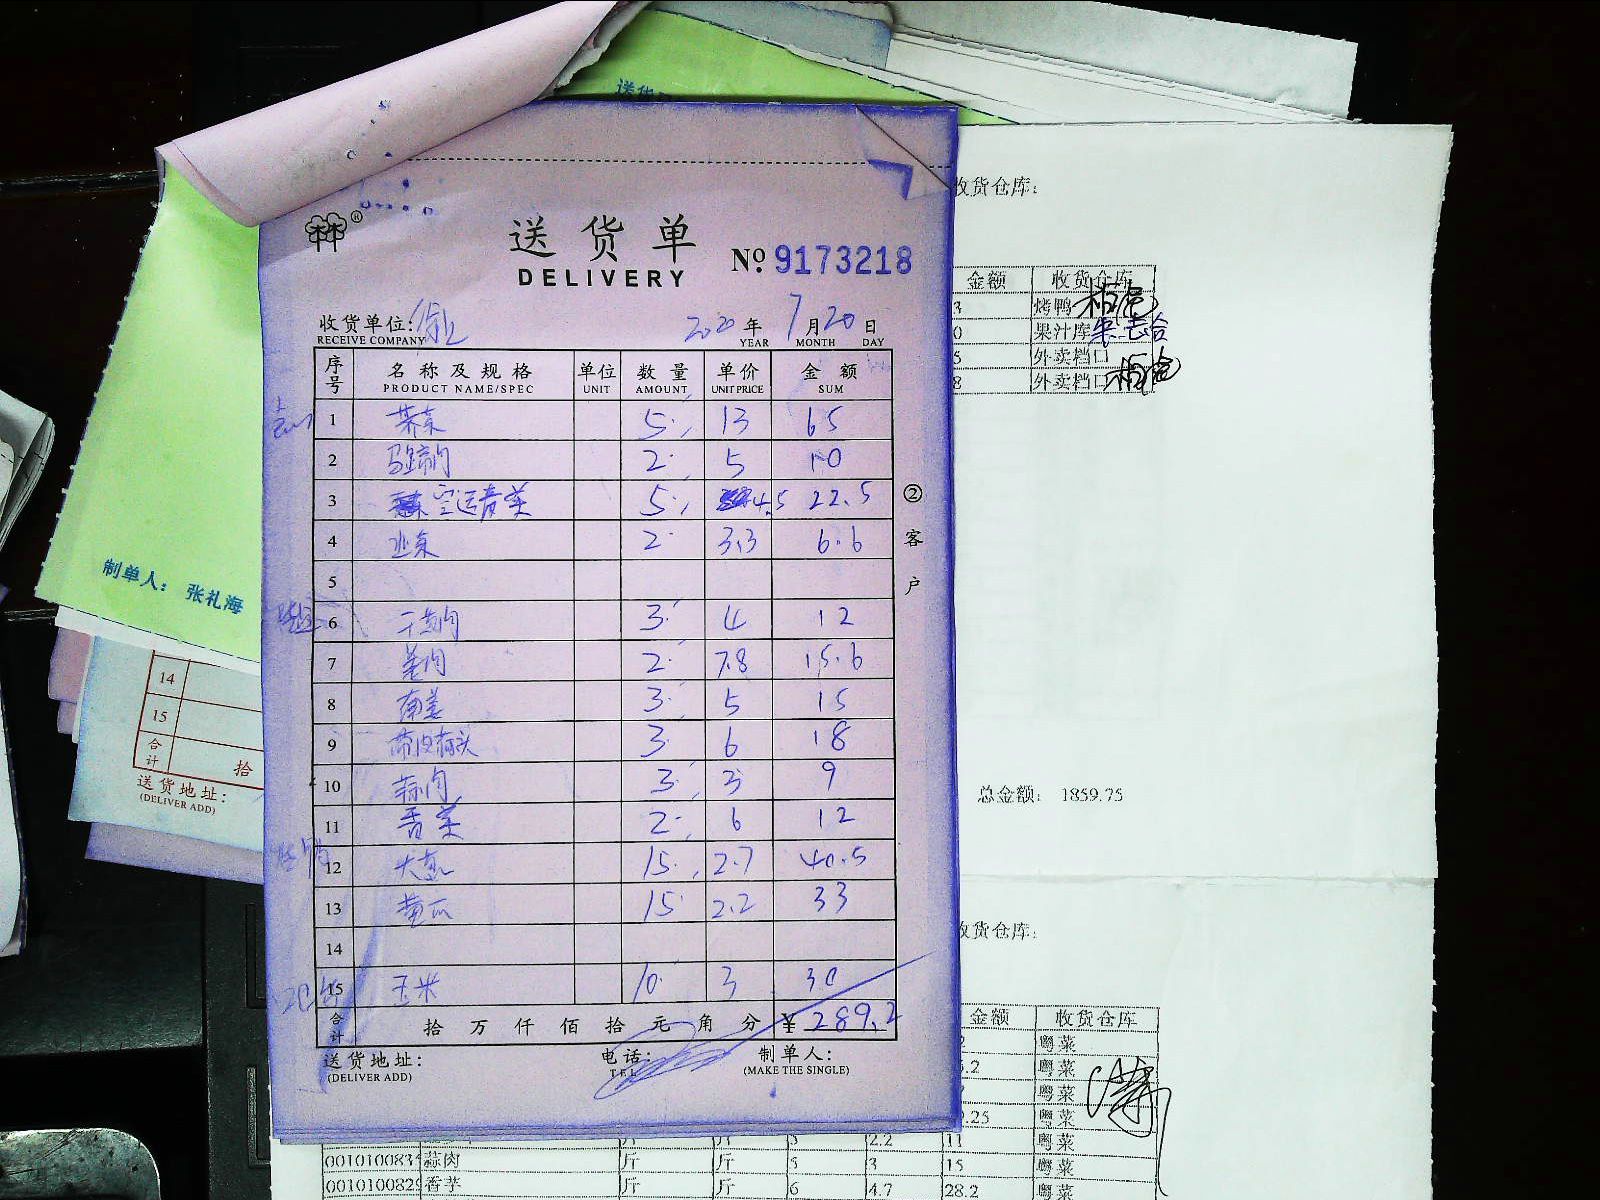 送货
送货单
DELIVERY
№ 9173218
收货单位:
RECEIVE COMPANY
2020 年 7 月 20 日
YEAR MONTH DAY
序号 名称及规格 单位 数量 单价 金额
PRODUCT NAME/SPEC UNIT AMOUNT UNIT PRICE SUM
1 茶菜 5 13 65
2 马蹄肉 2 5 10
3 空运青菜 5 4.5 22.5
4 2 3.3 6.6
5
6 干葱肉 3 4 12
7 姜肉 2 7.8 15.6
8 南姜 3 5 15
9 带皮蒜头 3 6 18
10 蒜肉 3 3 9
11 香菜 2 6 12
12 大葱 15 2.7 40.5
13 黄瓜 15 2.2 33
14
15 玉米 10 3 30
合计 拾 万 仟 佰 拾 元 角 分 ¥ 289.2
送货地址: 电话: 制单人:
(DELIVER ADD) TEL (MAKE THE SINGLE)
②客户
制单人: 张礼海
14
15
合计 拾
送货地址:
(DELIVER ADD)
收货仓库:
金额 收货仓库
3 烤鸭
0 果汁库
5 外卖档口
8 外卖档口
总金额: 1859.75
收货仓库:
金额 收货仓库
2 粤菜
.2 粤菜
粤菜
.25 粤菜
斤 斤 5 2.2 11 粤菜
001010083 蒜肉 斤 斤 5 3 15 粤菜
001010082 香芋 斤 斤 6 4.7 28.2 粤菜